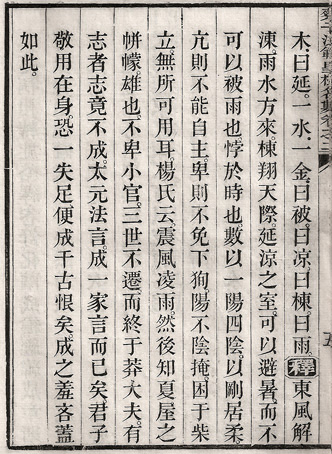 木曰延。一水一金曰被。曰涼曰棟曰雨。釋東風解
涷。雨水方來。棟翔天際延涼之室。可以避暑而不
可以被雨也。悖於時也。數以一陽四陰。以剛居柔。
亢則不能自主。卑則不免下狥。陽不陰掩。困于柴
立。無所可用耳。楊氏云。震風凌雨。然後知夏屋之
帡幪。雄也。不卑小官。三世不遷。而終于莽大夫。有
志者志竟不成。太元法言。成一家言而已矣。君子
敬用在身。恐一失足便成千古恨矣。成之羞吝蓋
如此。